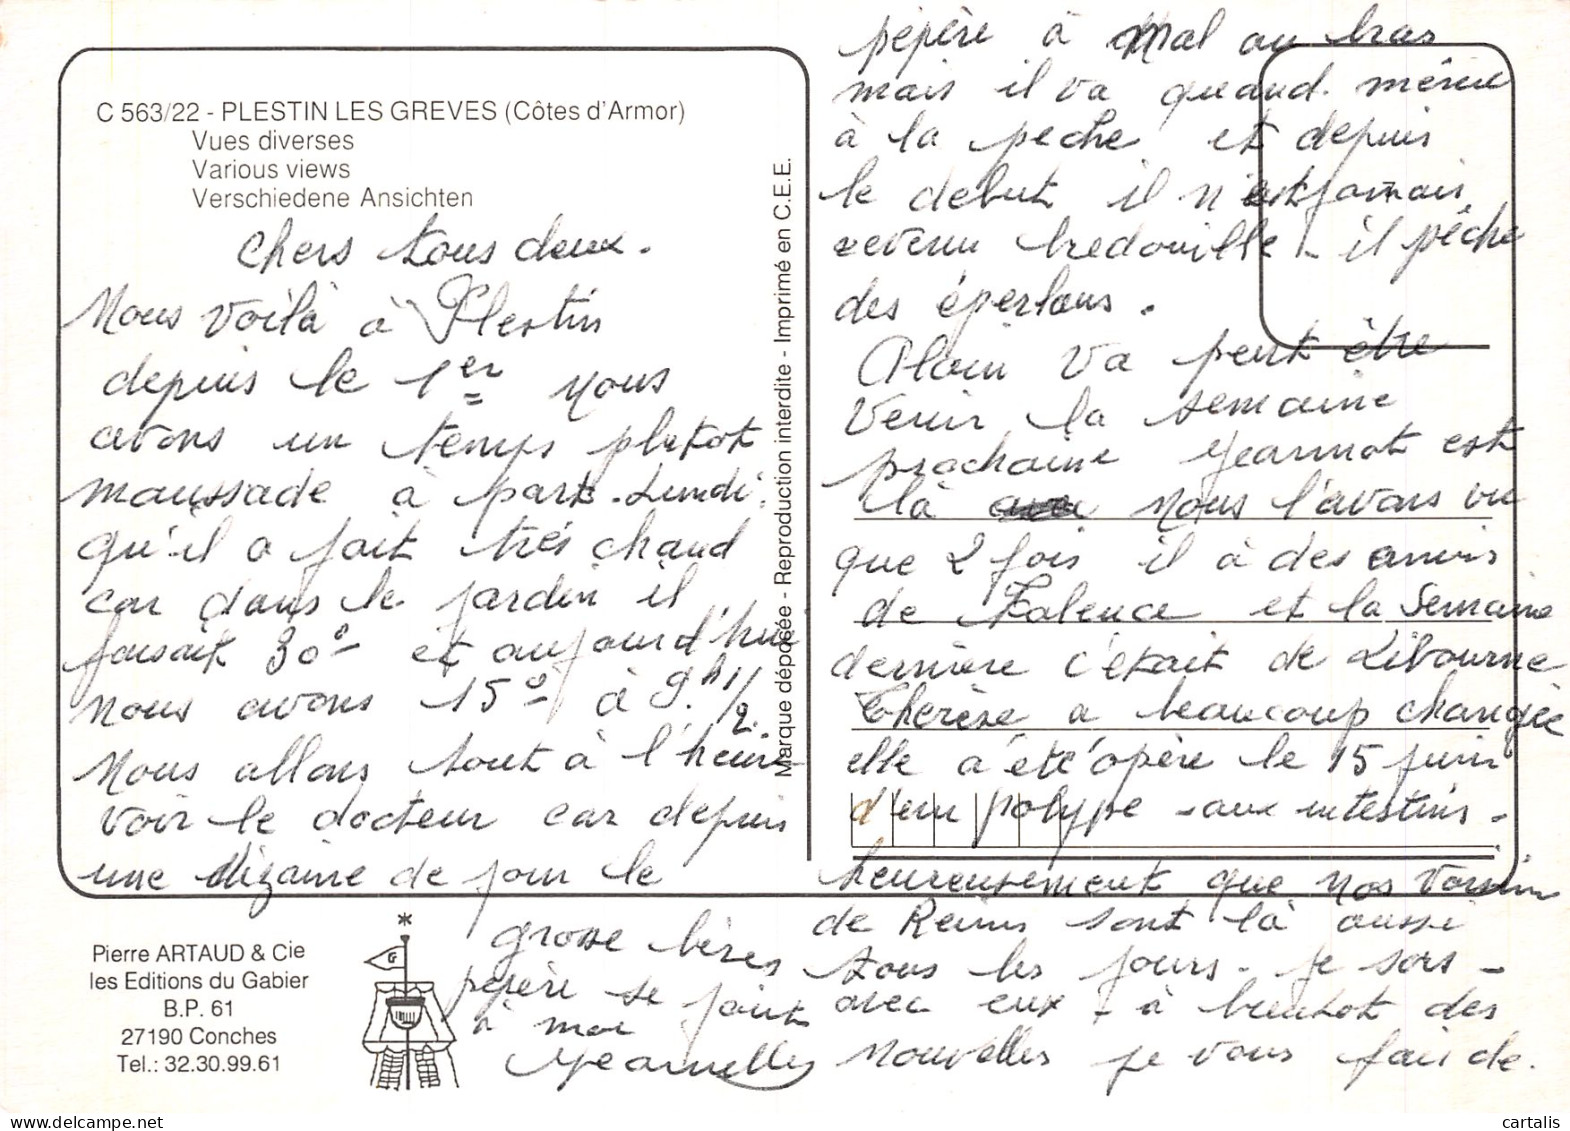 C 563/22 - PLESTIN LES GREVES (Côtes d'Armor)
Vues diverses
Various views
Verschiedene Ansichten
chers tous deux.
Nous voilà à Plestin
depuis le 1er nous
avons un temps plutot
maussade à part. Lundi
qu'il a fait très chaud
car dans le jardin il
faisait 30° et aujourd'hui
nous avons 15° à 9h 1/2.
Nous allons tout à l'heure
voir le docteur car depuis
une dizaine de jour le
pépère à mal au bras
mais il va quand même
à la peche et depuis
le debut il n'est jamais
revenu bredouille - il pêche
des éperlans.
Alain va peut être
venir la semaine
prochaine Jeannot est
là nous l'avons vu
que 2 fois il à des amis
de Valence et la semaine
dernière c'était de Libourne
Thérèse a beaucoup changée
elle a été opère le 15 juin
d'un polype - aux intestins -
heureusement que nos voisins
de Reims sont là aussi
tous les jours - je sors -
avec eux - à bientot des
nouvelles je vous fais de
grosse bères
pépère se joint
à moi
Marque déposée - Reproduction interdite - Imprimé en C.E.E.
Pierre ARTAUD & Cie
les Editions du Gabier
B.P. 61
27190 Conches
Tel.: 32.30.99.61
G
www.delcampe.net
cartalis